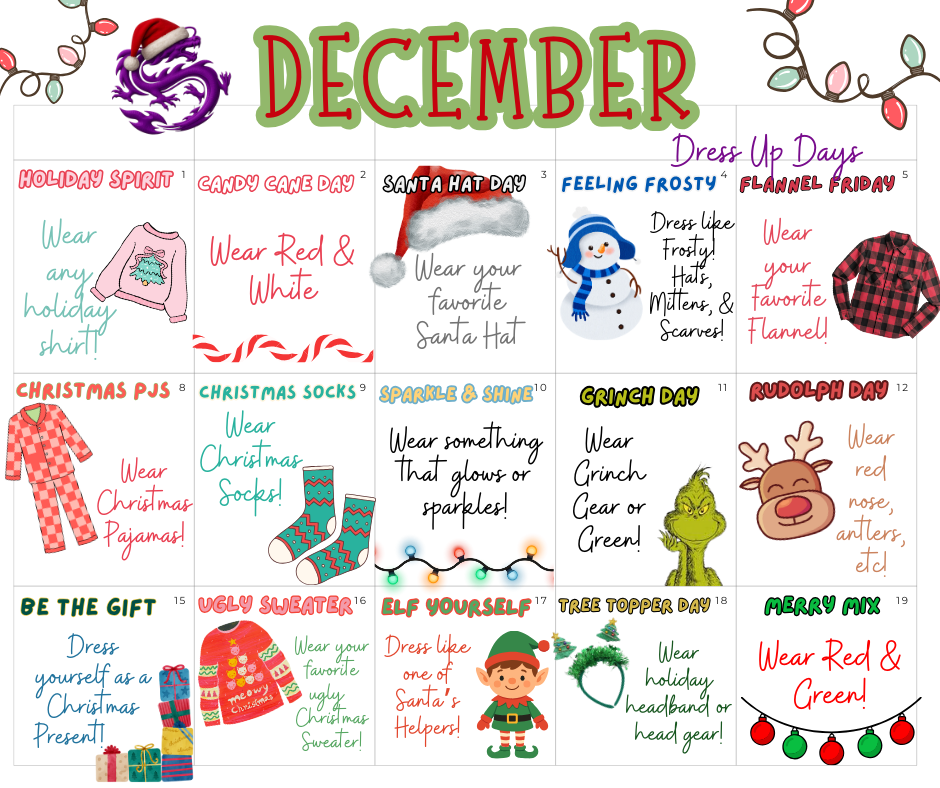 DECEMBER
Dress Up Days
HOLIDAY SPIRIT 1
Wear
any
holiday
shirt!
CANDY CANE DAY 2
Wear Red &
White
SANTA HAT DAY 3
Wear your
favorite
Santa Hat
FEELING FROSTY 4
Dress like
Frosty!
Hats,
Mittens, &
Scarves!
FLANNEL FRIDAY 5
Wear
your
Favorite
Flannel!
CHRISTMAS PJS 8
Wear
Christmas
Pajamas!
CHRISTMAS SOCKS 9
Wear
Christmas
Socks!
SPARKLE & SHINE 10
Wear something
that glows or
sparkles!
GRINCH DAY 11
Wear
Grinch
Gear or
Green!
RUDOLPH DAY 12
Wear
red
nose,
antlers,
etc!
BE THE GIFT 15
Dress
yourself as a
Christmas
Present!
UGLY SWEATER 16
meowy
Christmas
Wear your
favorite
ugly
Christmas
Sweater!
ELF YOURSELF 17
Dress like
one of
Santa's
Helpers!
TREE TOPPER DAY 18
Wear
holiday
headband or
head gear!
MERRY MIX 19
Wear Red &
Green!